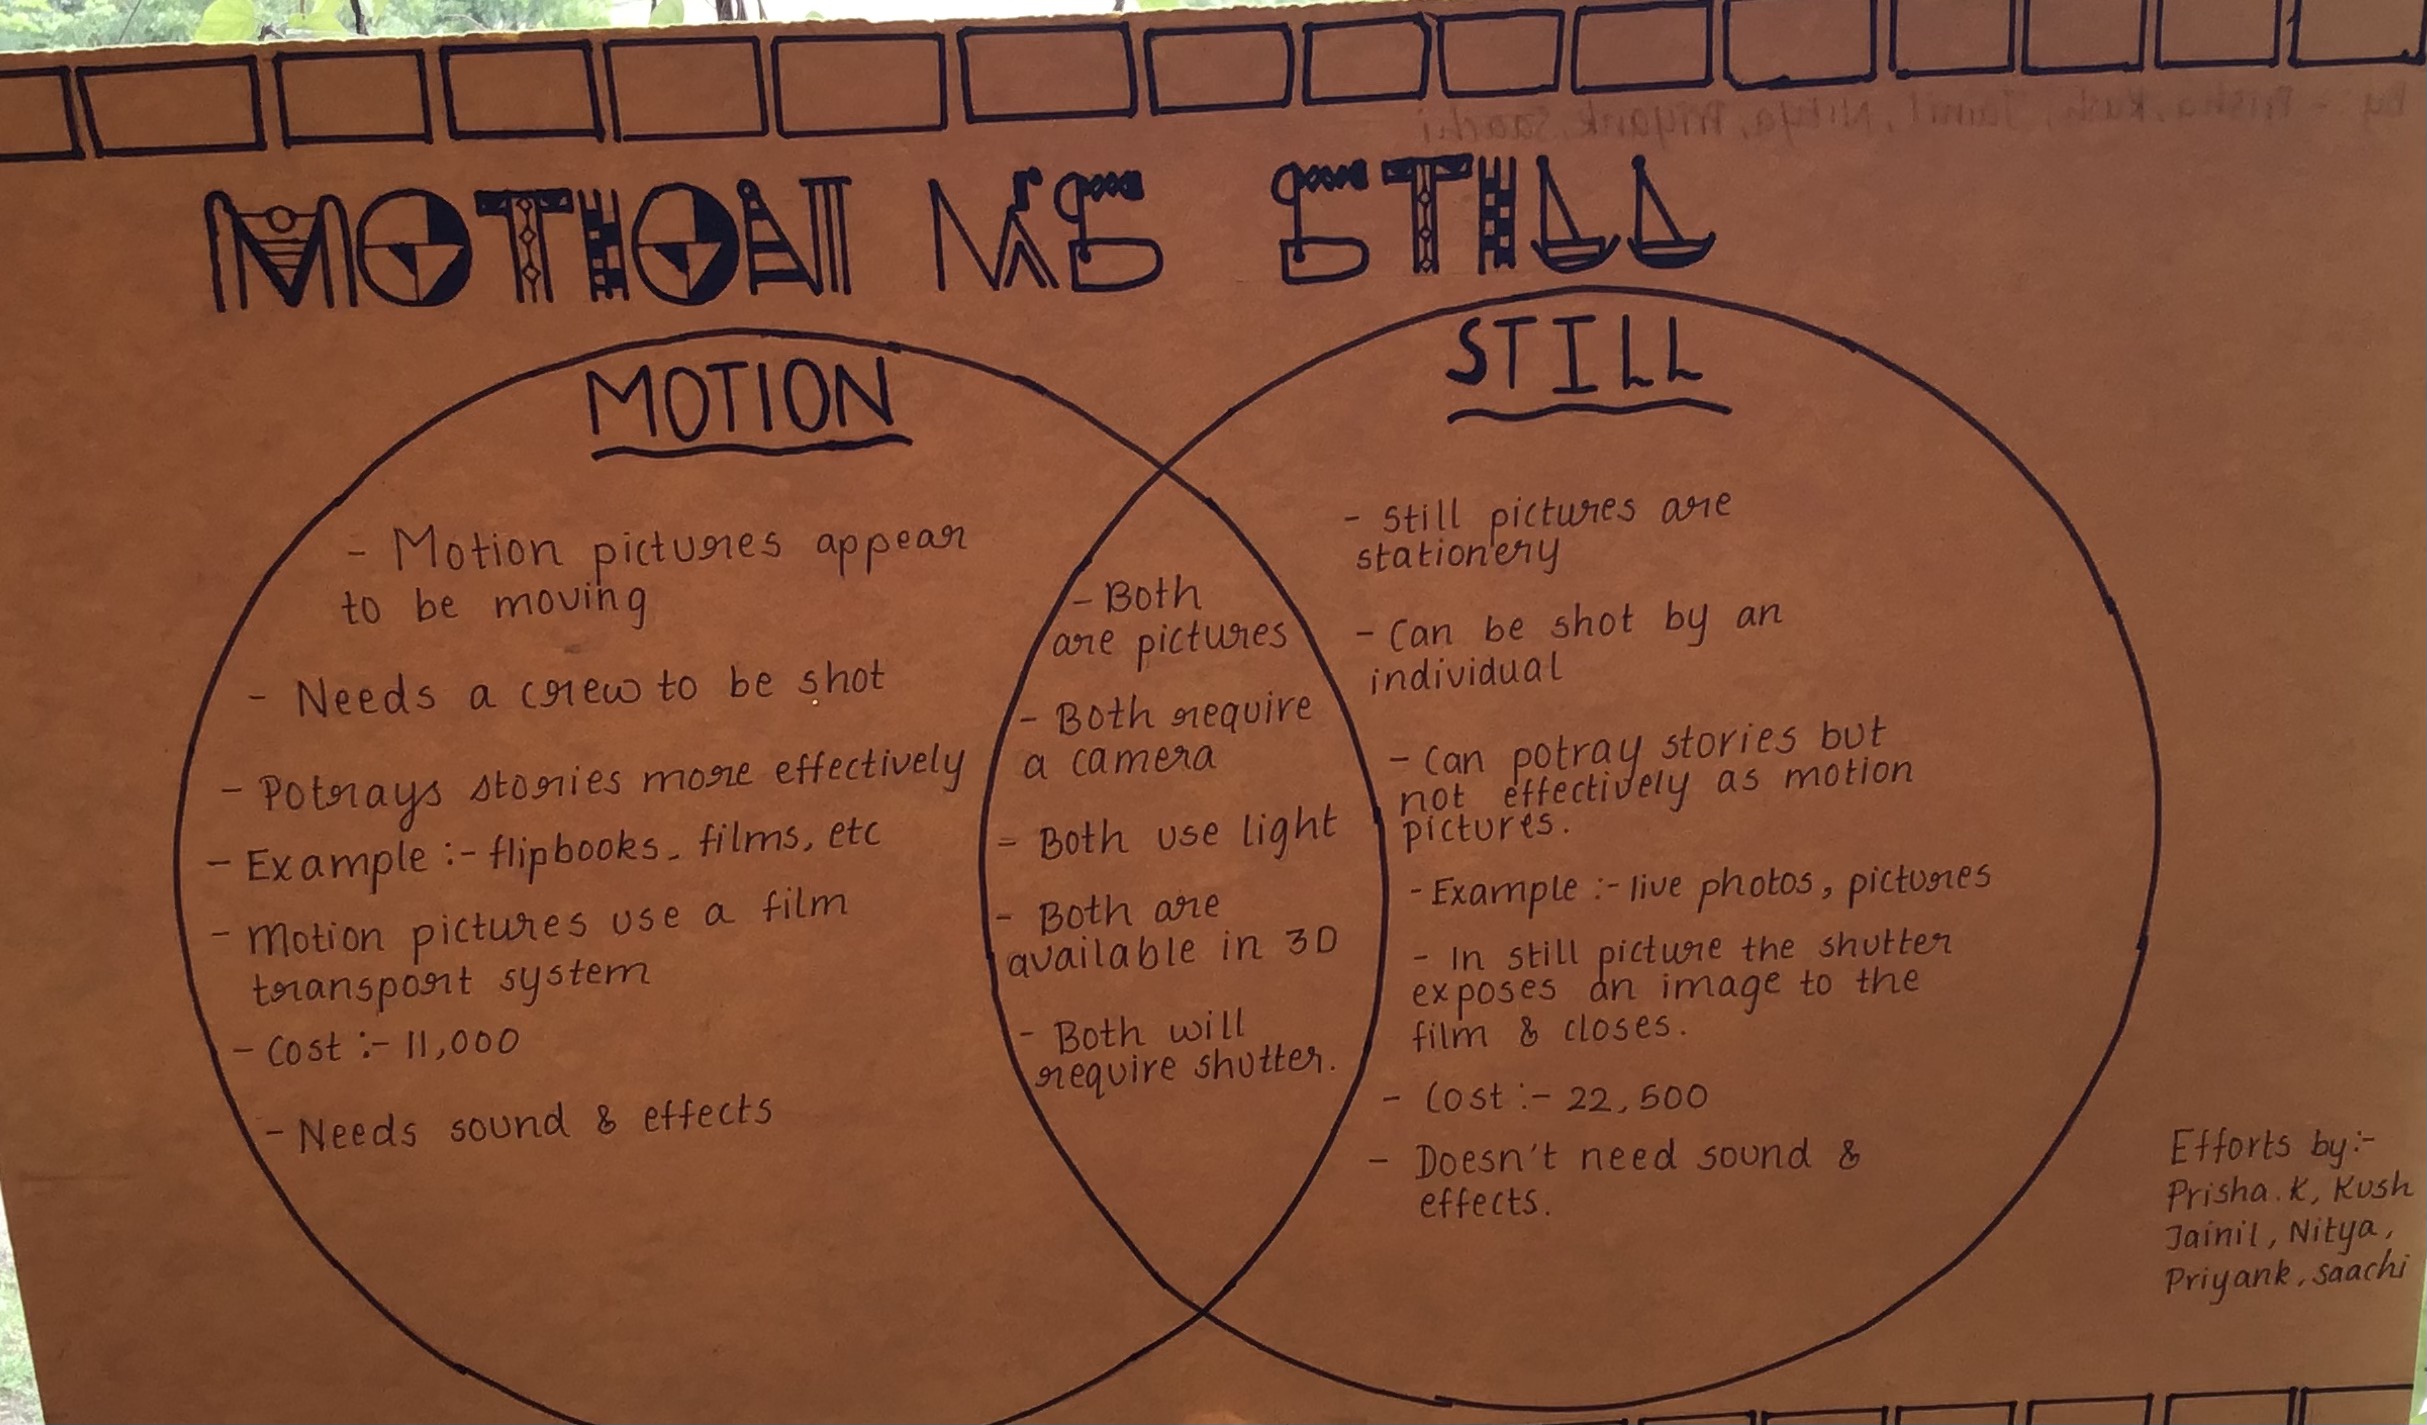 By :- Prisha, Kush, Jainil, Nitya, Priyank, Saachi
MOTION VS STILL
MOTION
- Motion pictures appear
to be moving
- Needs a crew to be shot
- Potrays stories more effectively
- Example :- flipbooks, films, etc
- Motion pictures use a film
transport system
- Cost :- 11,000
- Needs sound & effects
- Both
are pictures
- Both require
a camera
- Both use light
- Both are
available in 3D
- Both will
require shutter.
STILL
- Still pictures are
stationery
- Can be shot by an
individual
- Can potray stories but
not effectively as motion
pictures.
- Example :- live photos, pictures
- In still picture the shutter
exposes an image to the
film & closes.
- Cost :- 22,500
- Doesn't need sound &
effects.
Efforts by:-
Prisha.K, Kush
Jainil, Nitya,
Priyank, Saachi